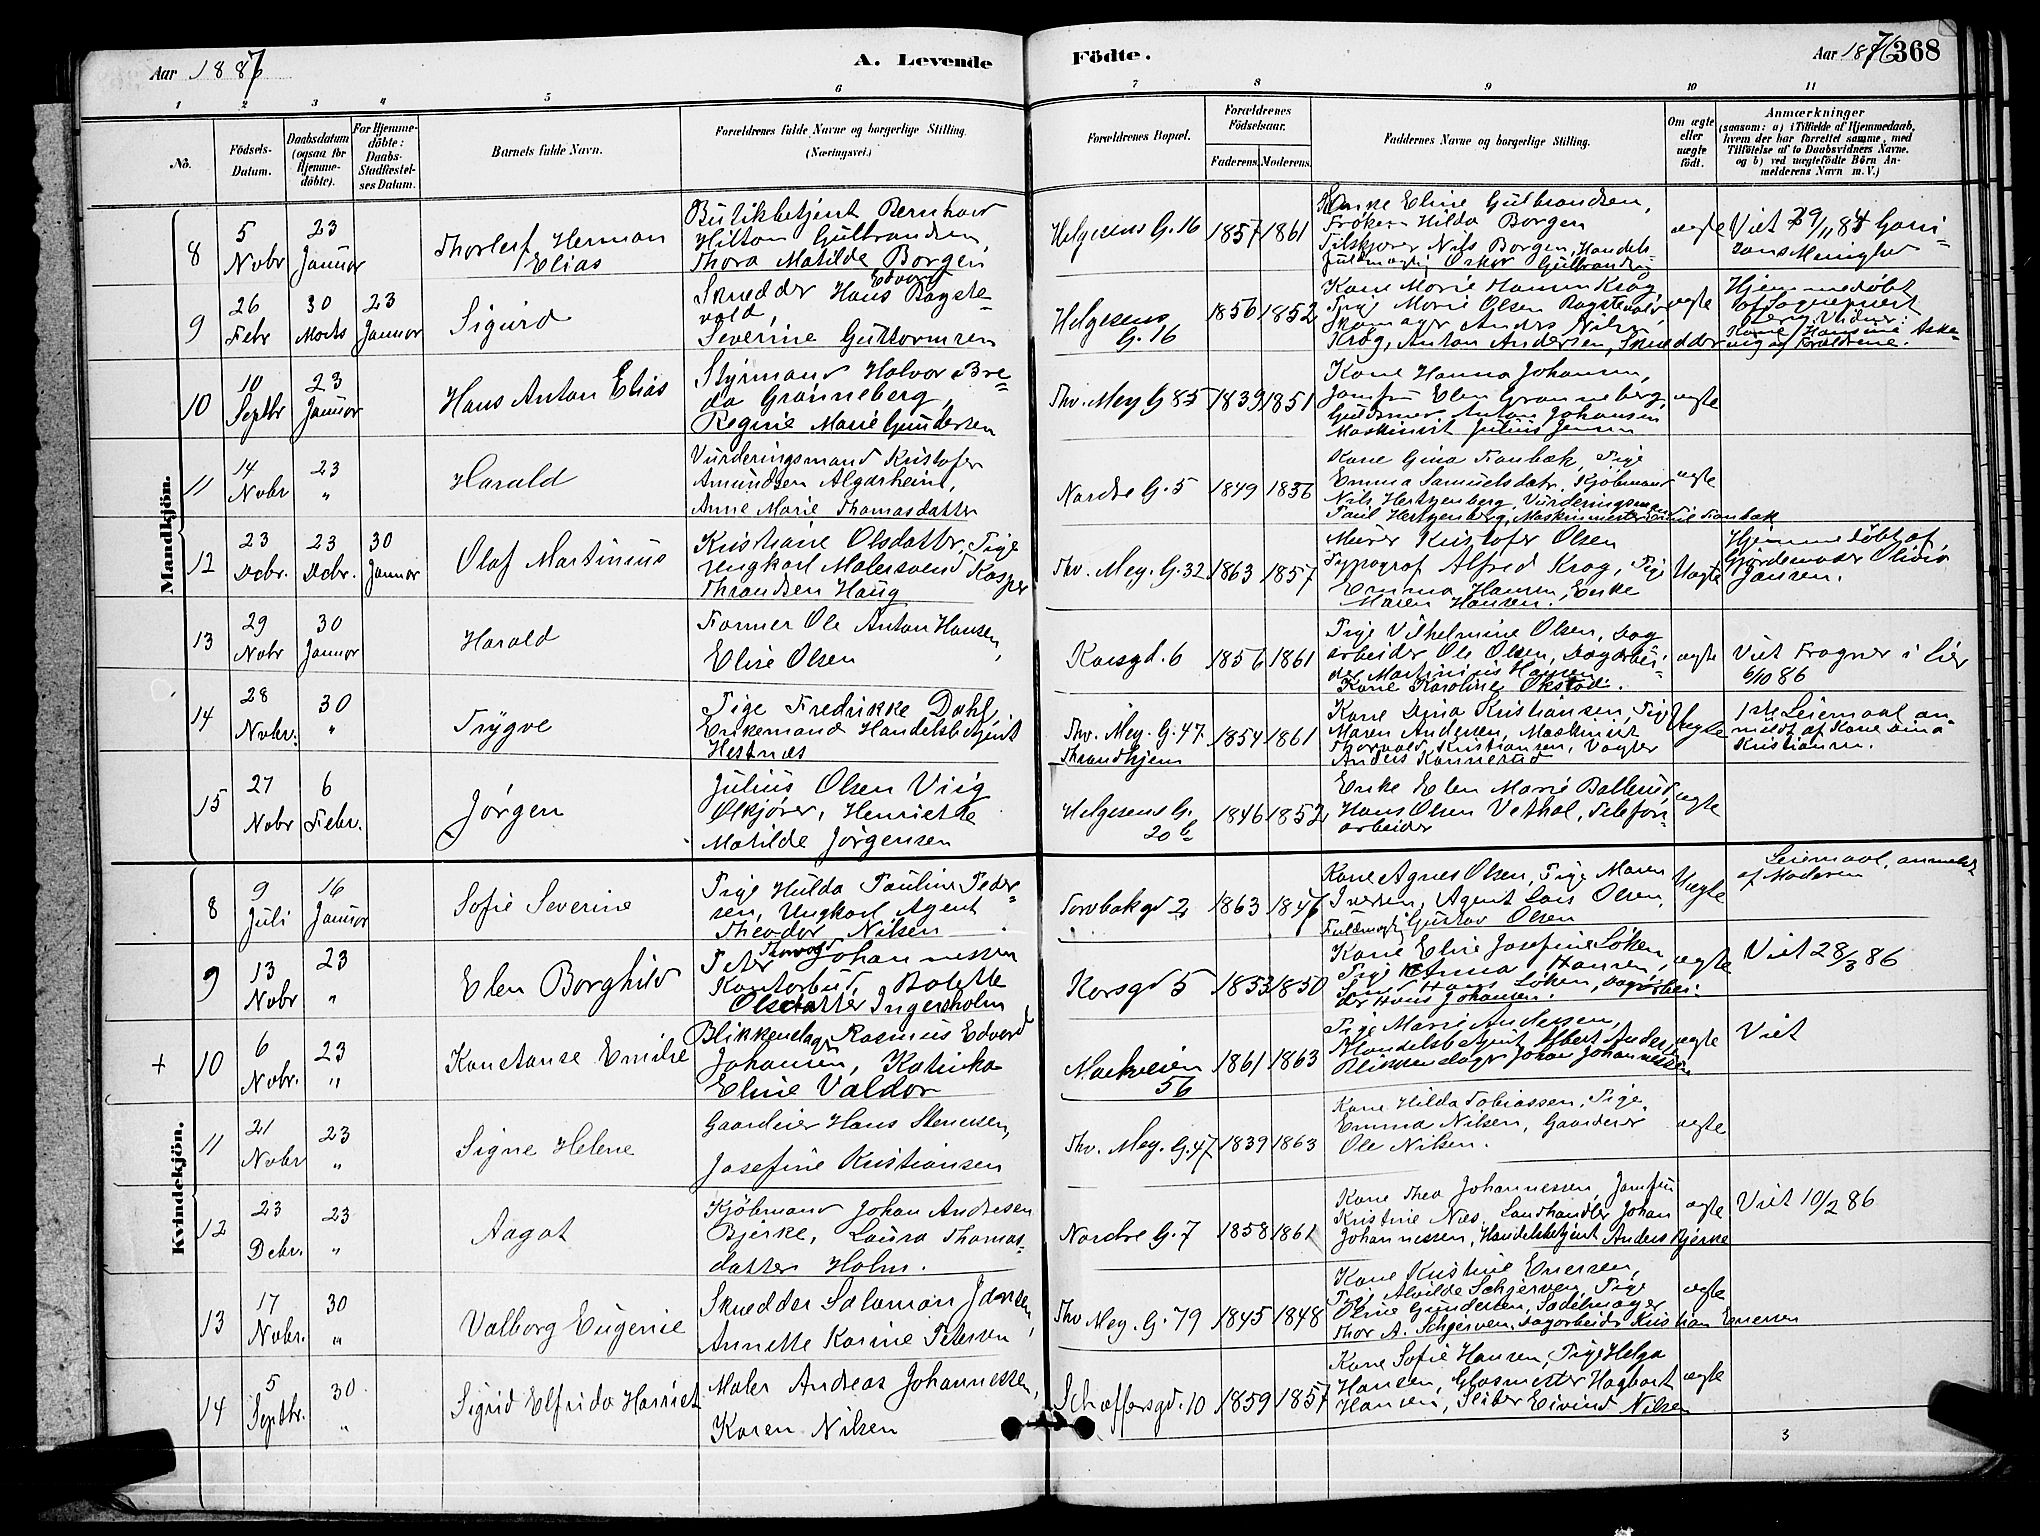 Aar 1887
A. Levende
Födte.
Aar 1876
368
1 2 3 4 5 6 7 8 9 10 11
No.
Födsels-
Datum.
Daabsdatum
(ogsaa for
Hjemme-
döbte).
For Hjemme-
döbte:
Daabs-
Stadfæstel-
ses Datum.
Barnets fulde Navn.
Forældrenes fulde Navne og borgerlige Stilling.
(Næringsvei.)
Forældrenes Bopæl.
Forældrenes
Födselsaar.
Faderens. Moderens.
Faddernes Navne og borgerlige Stilling.
Om ægte
eller
uægte
födt.
Anmærkninger
(saasom: a) i Tilfælde af Hjemmedaab,
hvem der har forrettet samme, med
Tilföielse af to Daabsvidners Navne.
og b) ved uægtefödte Börn An-
melderens Navn m. V.)
Mandkjön.
8
5
Novbr
23
Januar
Thorleif Herman
Elias
Butikbetjent Bernhard
Hilton Gulbrandsen,
Thora Matilde Borgen
Helgesens G. 16
1857 1861
Kone Eline Gulbrandsen,
Frøken Hilda Borgen
Tilskjærer Nils Borgen, Handels-
fuldmægtig Oskar Gulbrandsen
ægte
Viet 29/11 84 Garni-
sons Menighed
9
26
Febr
30
Marts
23
Januar
Sigurd
Edvard
Skrædder Hans Bagste-
vold,
Severine Guttormsen
Helgesens
G. 16
1856 1852
Kone Marie Hansen Krog
Pige Marie Olsen Bagstevold,
Skomager Anders Nilsen
Krog, Anton Andersen, Skrædder
ægte
Hjemmedøbt
af Sognepræst
10
10
Septbr
23
Januar
Hans Anton Elias
Styrmand Halvor Bre-
da Grønneberg,
Regine Marie Gundersen
Thv. Mey G 85
1839 1851
Kone Hanna Johansen,
Jomfru Elen Grønneberg,
Guldsmed Anton Johansen
Maskinist Julius Jensen
ægte
11
14
Novbr
23
"
Harald
Vurderingsmand Kristofer
Amundsen Algarheim,
Anne Marie Thomasdatter
Nordre G. 5
1849 1856
Kone Gina Fonbæk, Pige
Emma Samuelsdatr, Kjøbmand
Nils Hertzenberg, Vurderingsmand
Paul Hertzenberg, Maskinmester Emil Fonbæk
ægte
12
23
Dcbr.
23
Dcbr.
30
Januar
Olaf Martinius
Kristiane Olsdatter, Pige
Ungkarl Malersvend Kasper
Thrandsen Haug
Thv. Mey. G. 32
1863 1857
Murer Kristofer Olsen
Typograf Alfred Krog, Pige
Emma Hansen, Enke
Maren Hansen.
Uægte
Hjemmedøbt af
Gjordemoder Olivia
Jansen.
13
29
Novbr
30
Januar
Harald
Former Ole Anton Hansen,
Elise Olsen
Korsgd. 6
1856 1861
Pige Vilhelmine Olsen, Dag-
arbeider Ole Olsen, Dagarbei-
der Martinius Hansen
Kone Karoline Økstad.
ægte
Viet Frogner i Lier
6/10 86
14
28
Novbr.
30
"
Trygve
Pige Fredrikke Dahl,
Enkemand Handelsbetjent
Hestnæs
Thv. Mey. G. 47.
Throndhjem
1854 1861
Kone Dina Kristiansen, Pige
Maren Andersen, Maskinist
Thorvald Kristiansen, Vogter
Anders Kannerud
Uægte
1ste Leiermaal an-
meldt af Kone Dina
Kristiansen.
15
27
Novbr
6
Febr.
Jørgen
Julius Olsen Viig
Ølkjører, Henriette
Matilde Jørgensen
Helgesens G.
20 b
1846 1852
Enke Elen Marie Ballerud,
Hans Olsen Vethal, Telefon-
arbeider
ægte
Kvindekjön.
8
9
Juli
16
Januar
Sofie Severine
Pige Hulda Pauline Peder-
sen, Ungkarl Agent
Theodor Nilsen
Torvbakgd 2
1863 1846
Kone Agnes Olsen, Pige Maren
Iversen, Agent Lars Olsen,
Fuldmægtig Gustav Olsen
Uægte
Leiermaal, anmeldt
af Moderen
9
13
Novbr
23
"
Elen Borghild
Thorvald
Peter Johannessen
Kontorbud, Bolette
Olsdatter Ingersholm
Korsgd 5
1853 1850
Kone Eline Josefine Løken,
Pige Anna Hansen,
Smed Hans Løken, Dagarbei-
der Hans Johansen.
ægte
Viet 28/3 86
+
10
6
Novbr.
23
"
Konstanse Emilie
Blikkenslager Rasmus Edvard
Johansen, Katinka
Eline Valdor
Markveien
56
1861 1863
Pige Marie Andersen,
Handelsbetjent Albert Andersen,
Blikkenslager Johan Johannessen
ægte
Viet
11
21
Novbr
23
"
Signe Helene
Gaardeier Hans Stenersen,
Josefine Kristiansen
Thv. Mey. G. 47
1839 1863
Kone Hilda Tobiassen, Pige
Emma Nilsen, Gaardeier
Ole Nilsen.
ægte
12
23
Dcbr.
23
"
Aagot
Kjøbmand Johan Andresen
Bjerke, Laura Thomas-
datter Holm.
Nordre G. 7
1858 1861
Kone Thea Johannessen, Jomfru
Kristine Næs, Landhandler Johan
Johannessen, Handelsbetjent Anders Bjerke
ægte
Viet 10/2 86
13
17
Novbr.
30
"
Valborg Eugenie
Skrædder Salomon Jansen,
Annette Karine Petersen
Thv Mey. G. 79
1845 1848
Kone Kristine Enersen,
Pige Alvilde Schjerven, Pige
Oline Gundersen, Sadelmager
Thor A. Schjerven, Dagarbeider Kristian Enersen
ægte
14
5
Septbr.
30
"
Sigrid Elfrida Harriet
Maler Andreas Johannessen,
Karen Nilsen
Schæffersgd. 10
1859 1857
Kone Sofie Hansen, Pige Helga
Hansen, Glasmester Hagbart
Hansen, Sliber Eivind Nilsen
ægte
3